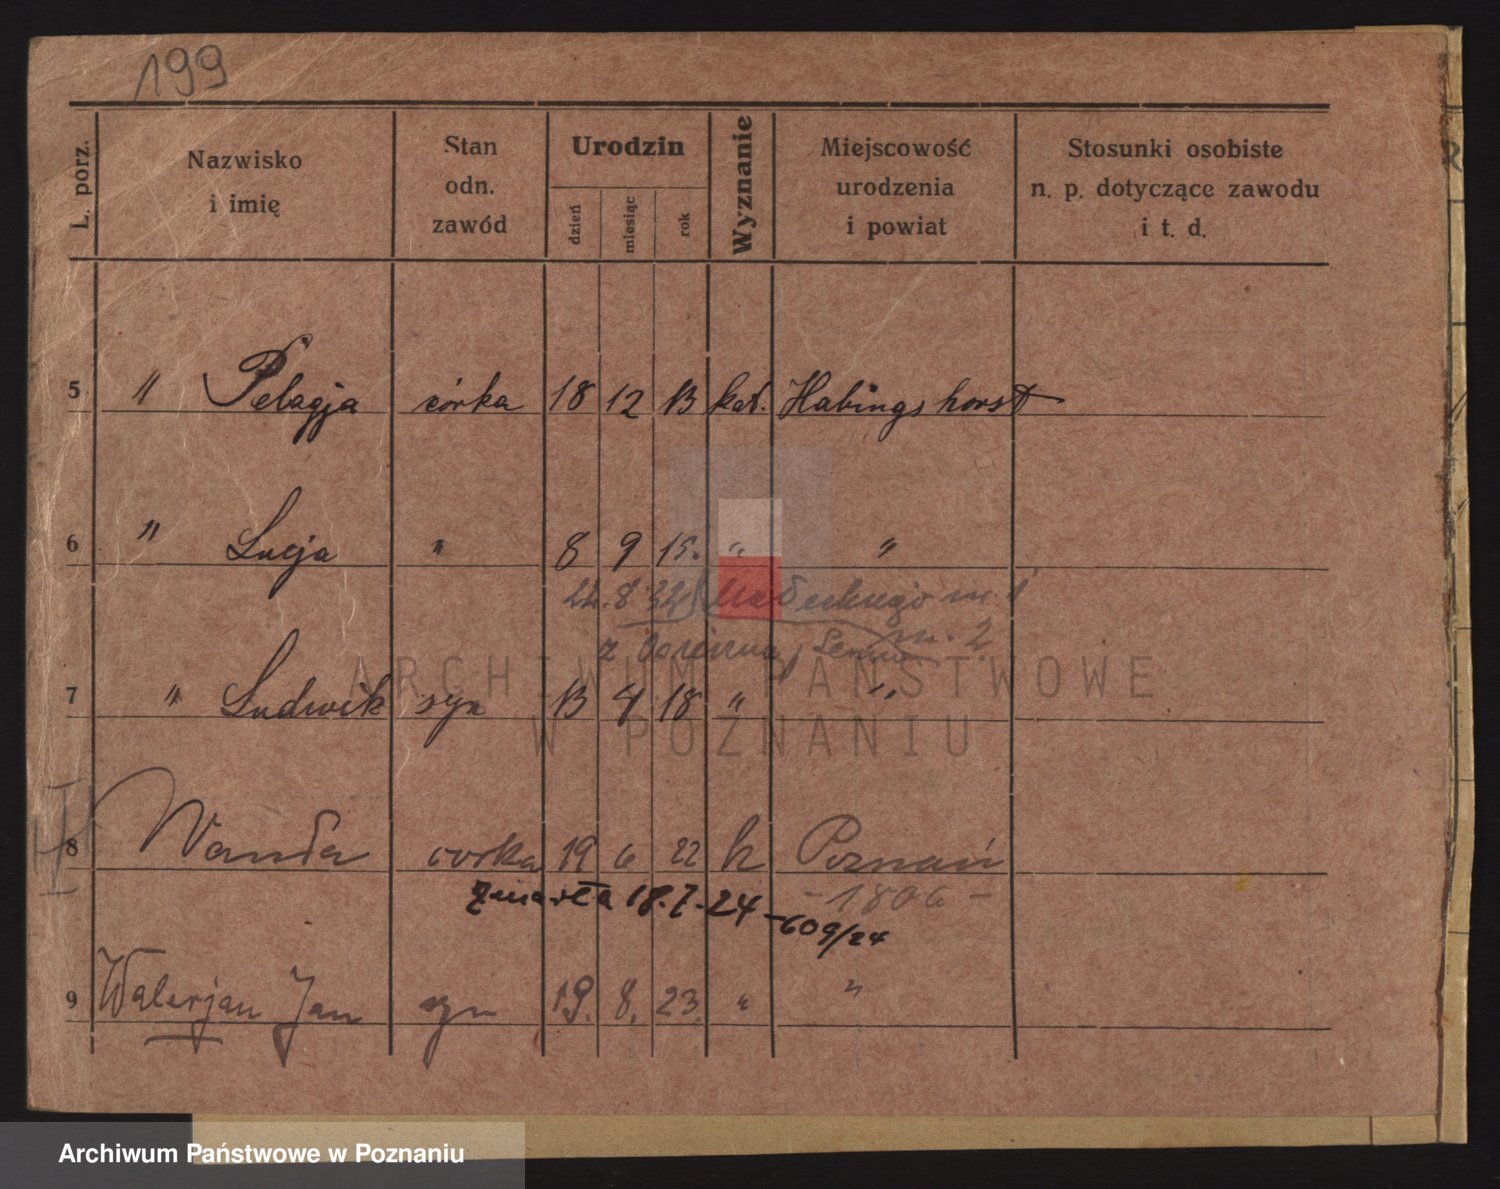 199
L. porz.
Nazwisko
i imię
Stan
odn.
zawód
Urodzin
dzień
miesiąc
rok
Wyznanie
Miejscowość
urodzenia
i powiat
Stosunki osobiste
n. p. dotyczące zawodu
i t. d.
5 " Pelagja córka 18 12 13 kat. Habingshorst
6 " Lucja " 8 9 15. " "
22.8 32 m. 1
z m. 2
7 " Ludwik syn 13 4 18 " "
ARCHIWUM PAŃSTWOWE
W POZNANIU
8 Wanda corka 19 6 22 k Poznań
Zmarła 18.7.24 - 609/24
- 1806 -
9 Walerjan Jan syn 19. 8. 23. " "
Archiwum Państwowe w Poznaniu